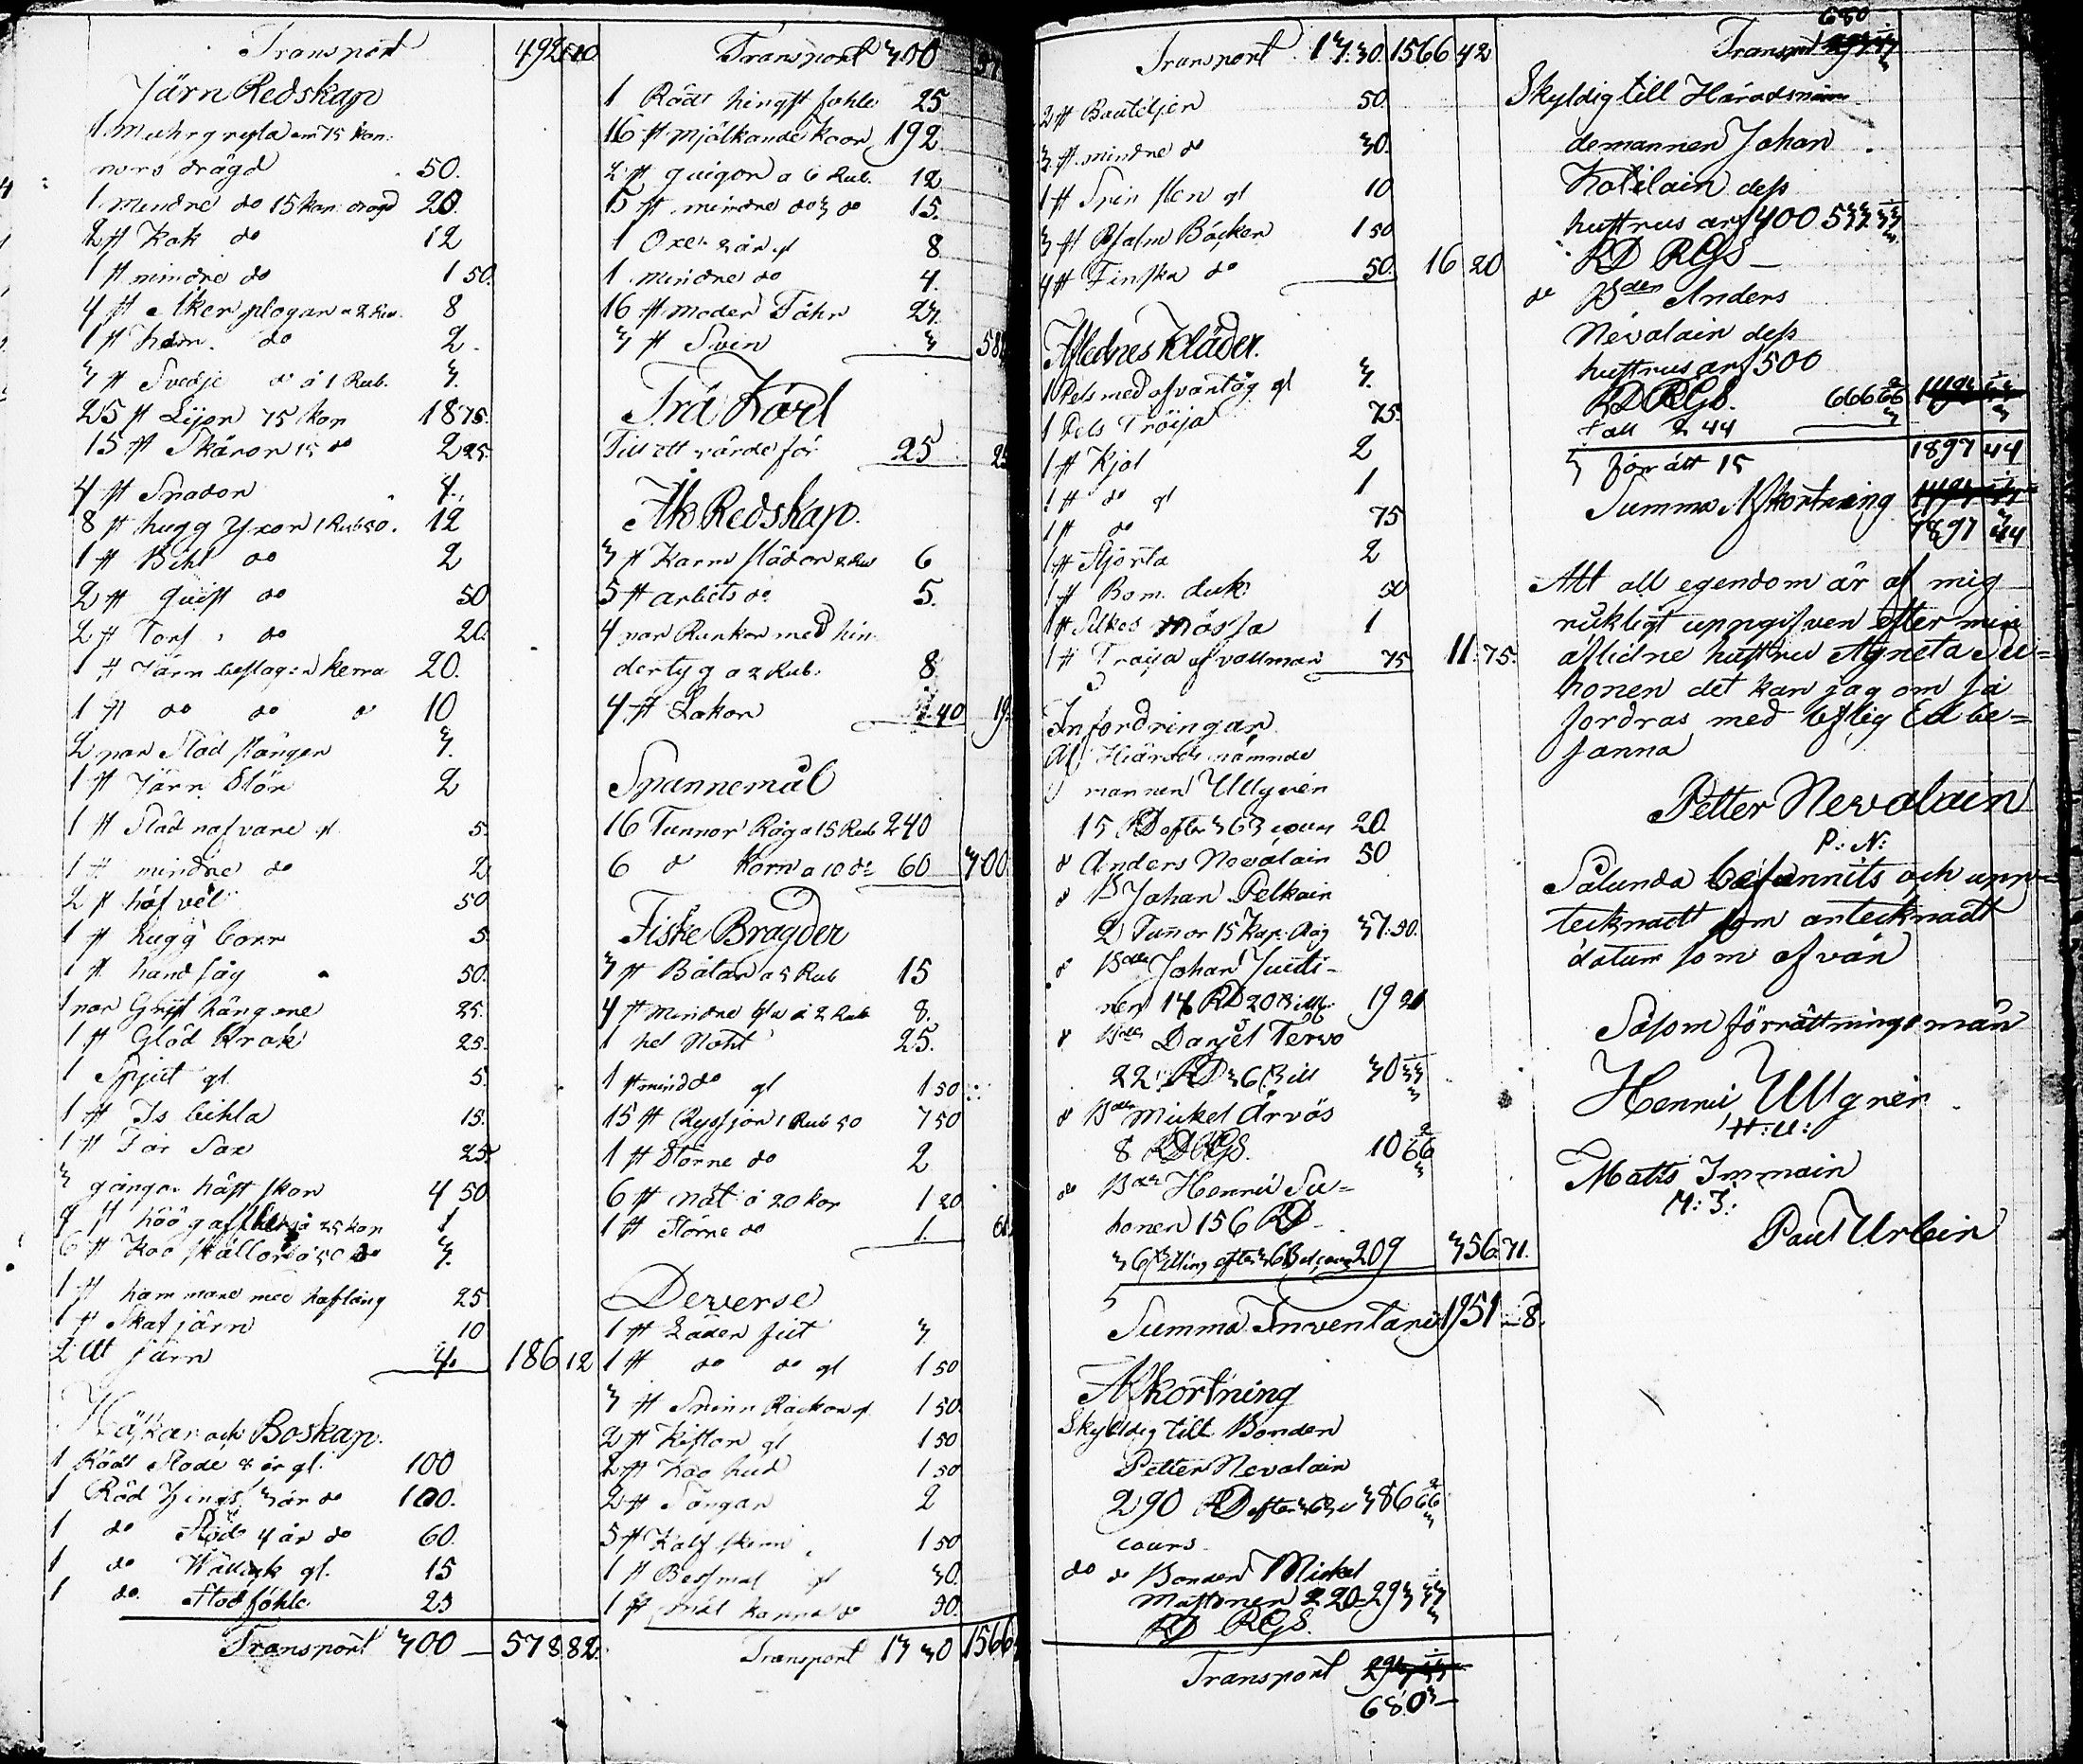 Transport 492 10
Järn Redskap
50.
1 mindre do 15 kan: drägd 20.
2 st Kok do 12
1 st mindre do 1 50.
4 st Åker plogar a 2 8
1 st do 2.
3 st Svedje do á 1 Rub. 3.
25 st Lijor 75 kop 18 75.
15 st Skäror 15 do 2 25.
4 st 4.
8 st hugg Yxor 1 Rub 50. 12
1 st Bihl do 2
2 st do 50
2 st Torf do 20.
1 st Järn beslagen kerra 20.
1 st do do do 10
2 par Släd stänger 3.
1 st Järn Stör 2
1 st Släd nafvare gl 5
1 st mindre do 2
2 st höfvel 50
1 st hugg borr 5
1 st hand såg 50.
1 par hängene 25.
1 st Glöd Krok 25.
1 Spjut gl. 5
1 st Is bihla 15.
1 st Får Sax 25.
3 gångor häst skor 4 50
4 st höögafflar à 25 kop 1
6 st Koo skällor à 50 do 3.
1 st hammare med haftång 25
1 st Skaf järn 10
2 järn 4. 186 12
Hästar och Boskap.
1 Rödt Stode 8 år gl. 100
1 Röd 3 år do 100.
1 do Stod 4 år do 60.
1 do Wallack gl. 15
1 do Stod föhle 25
Transport 300 — 578 82.
Transport 300
1 Rödt hingst fohle 25
16 st mjölkande Koor 192
2 st quigor a 6 Rub. 12
5 st mindre do 3 do 15.
1 Oxe 2 år gl 8
1 mindre do 4.
16 st moder Fåhr 24.
3 st Svin 3 58
Trä Kärl
Till ett värde för 25 25
Åk Redskap.
3 st Karm slädor a 2 Rub 6
5 st arbets do 5.
4 par Runkor med hin
dertyg a 2 Rub. 8
4 st Lokor 40 19
Spannemål
16 Tunnor Råg a 15 Rub 240
6 do Korn a 10 do 60 300
Fiske Bragder
3 st Båtar a 5 Rub 15
4 st mindre à 2 Rub 8.
1 hel Noht 25.
1 st mind do gl 1 50
15 st Ryssjor 1 Rub 50 7 50
1 st Störne do 2
6 st nät à 20 kop 1 20
1 st Störne do 1.
Deverse
1 st Läder 3
1 st do do gl 1 50
3 st Spinn Råckor gl. 1 50.
2 st Kistor gl 1 50
2 st Koo hud 1 50
2 st Sängar 2
5 st Kalf skinn 1 50
1 st Besman gl 30.
1 st mål kanna do 30.
Transport 13 30 1566
Transport 13.30. 1566 42
2 st Bouteljer 50.
3 st mindre do 30.
1 st gl 10
3 st Psalm Böcker 1 50
4 st Finska do 50. 16 20
Aflednes Kläder.
1 Pels med ofvantåg gl 3.
1 Pels Tröija 75.
1 st Kjol 2
1 st do gl 1
1 st do 75
1 st Stjorta 2
1 st Bom. duk 50
1 st Silkes Mössa 1
1 st Troija af vallmar 75 11.75.
Infordringar
Af Härads nämnde
mannen Ullgrén
15 RD efter 363 cours 20.
do Anders Nevalain 50
do Johan Pelkoin
2 Tunnor 15 Kap. Råg 37.50.
do Bdn Johan
nen 14 RD 20 skill. 19 21
do Bdn Danjel Tervo
22 RD 36 skill 30
do Bdn Mickel Arvös
8 RD RGS. 10 66
do Bdn Henric Su=
honen 156 RD
36 skilling efter 363 cours 209 356.71.
Summa Inventarii 1951 — 8.
Afkortning
Skyldig till Bonden
Petter Nevalain
290 RD efter 363 386 66
cours.
do do Bonden Mickel
220 — 293
RD RGS.
Transport
680 —
680
Transport
Skyldig till Häradsnäm
demannen Johan
Kotilain dess
hustrus arf 400
RD RGS —
do Bden Anders
Nevalain dess
hustrus arf 500
RD RGS. 666 66
1897 44
förrätt 15
Summa Afkortning
1897 44
Att all egendom är af mig
ricktigt uppgifven efter min
aflidne hustru Agneta Su=
honen det kan jag om så
fordras med liflig Ed be=
sanna
Petter Nevalain
P: N:
Sålunda befunnits och upp=
tecknadt som antecknadt
datum som ofvan
Såsom förrättningsmän
Henric Ullgrén
H: U:
Matts Immoin
M: I:
Paul Urbin